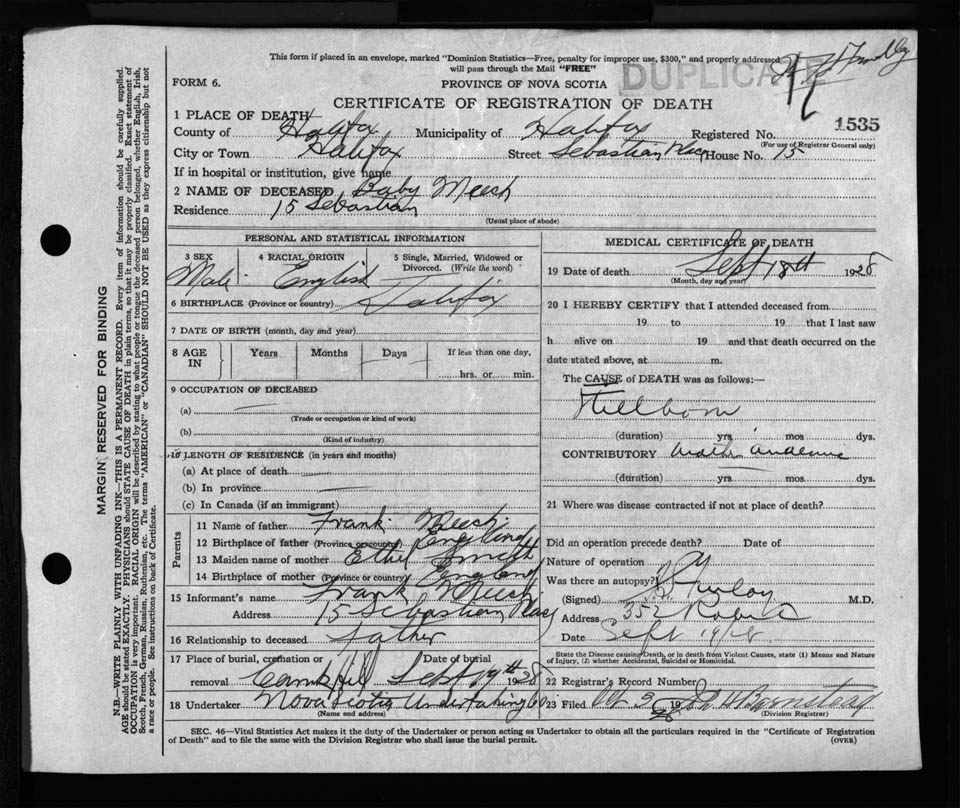 This form if placed in an envelope, marked "Dominion Statistics—Free, penalty for improper use, $300," and properly addressed
will pass through the Mail "FREE"
DUPLICATE
FORM 6.
PROVINCE OF NOVA SCOTIA
CERTIFICATE OF REGISTRATION OF DEATH
1535
1 PLACE OF DEATH
County of Halifax Municipality of Halifax Registered No.
(For use of Registrar General only)
City or Town Halifax Street Sebastian Place House No. 15
If in hospital or institution, give name
2 NAME OF DECEASED Baby Meech
Residence 15 Sebastian
(Usual place of abode)
PERSONAL AND STATISTICAL INFORMATION
3 SEX 4 RACIAL ORIGIN 5 Single, Married, Widowed or Divorced. (Write the word)
Male English
6 BIRTHPLACE (Province or country) Halifax
7 DATE OF BIRTH (month, day and year)
8 AGE IN Years Months Days If less than one day, hrs. or min.
9 OCCUPATION OF DECEASED
(a)
(Trade or occupation or kind of work)
(b)
(Kind of industry)
10 LENGTH OF RESIDENCE (in years and months)
(a) At place of death
(b) In province
(c) In Canada (if an immigrant)
Parents
11 Name of father Frank Meech
12 Birthplace of father (Province or country) England
13 Maiden name of mother Ethel Smith
14 Birthplace of mother (Province or country) England
15 Informant's name Frank Meech
Address 15 Sebastian Place
16 Relationship to deceased Father
17 Place of burial, cremation or removal Date of burial
Camp Hill Sept 19th 1928
18 Undertaker Nova Scotia Undertaking Co
(Name and address)
MEDICAL CERTIFICATE OF DEATH
19 Date of death Sept 18th 1928
(Month, day and year)
20 I HEREBY CERTIFY that I attended deceased from
19 to 19 that I last saw
h alive on 19 and that death occurred on the
date stated above, at m.
The CAUSE of DEATH was as follows:—
Stillborn
(duration) yrs mos dys.
CONTRIBUTORY
(duration) yrs. mos. dys.
21 Where was disease contracted if not at place of death?
Did an operation precede death? Date of
Nature of operation
Was there an autopsy?
(Signed) M.D.
Address 352 Robie
Date Sept 19/28
State the Disease causing Death, or in death from Violent Causes, state (1) Means and Nature
of Injury, (2) whether Accidental, Suicidal or Homicidal.
22 Registrar's Record Number
23 Filed Oct 2 19 28
(Division Registrar)
SEC. 46—Vital Statistics Act makes it the duty of the Undertaker or person acting as Undertaker to obtain all the particulars required in the "Certificate of Registration
of Death" and to file the same with the Division Registrar who shall issue the burial permit.
(OVER)
MARGIN RESERVED FOR BINDING
N.B.—WRITE PLAINLY WITH UNFADING INK—THIS IS A PERMANENT RECORD. Every item of information should be carefully supplied.
AGE should be stated EXACTLY. PHYSICIANS should STATE CAUSE OF DEATH in plain terms, so that it may be properly classified. Exact statement of
OCCUPATION is very important. RACIAL ORIGIN will be described by stating to what people or tongue the deceased person belonged, whether English, Irish,
Scotch, French, German, Russian, Ruthenian, etc. The terms "AMERICAN" or "CANADIAN" SHOULD NOT BE USED as they express citizenship but not
a race or people. See instructions on back of Certificate.